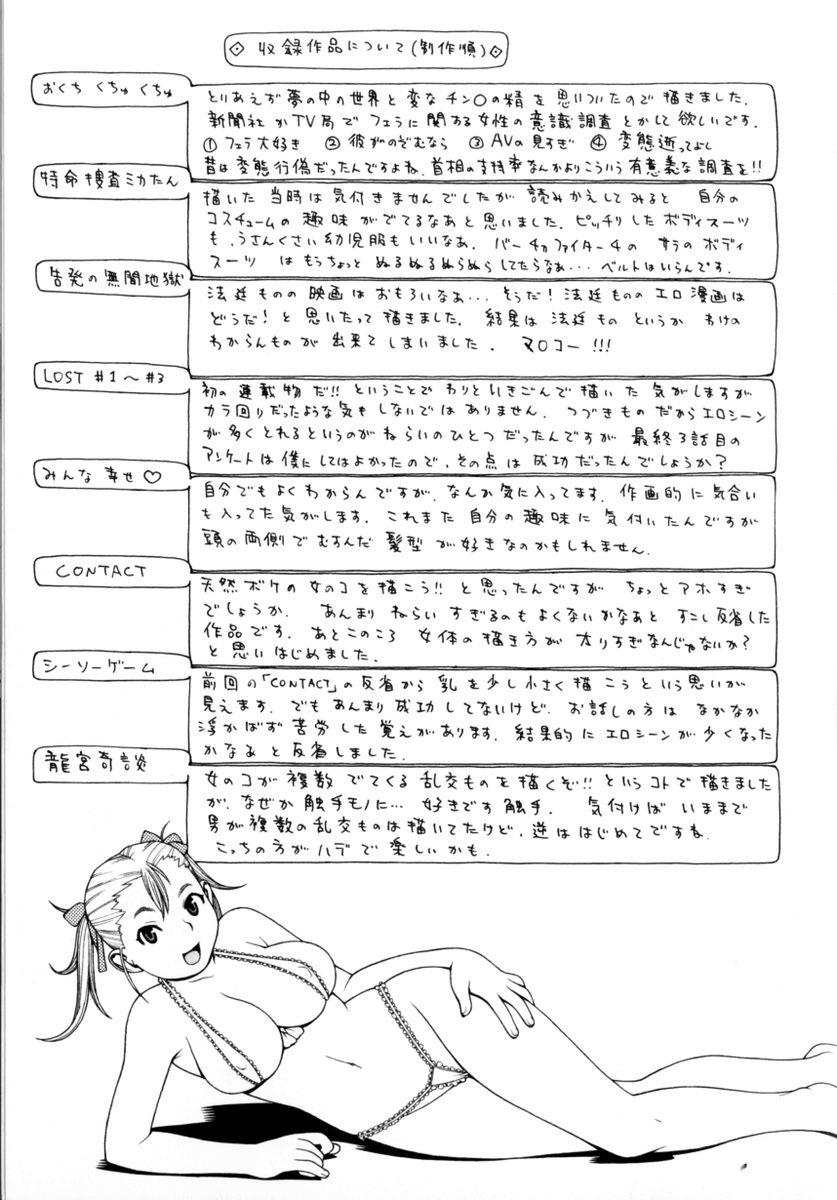 収録作品について(制作順)
おくち くちゅ くちゅ
とりあえず夢の中の世界と変なチン○の精を思いついたので描きました.
新聞社かTV局でフェラに関する女性の意識調査とかして欲しいです.
①フェラ大好き ②彼がのぞむなら ③AVの見すぎ ④変態逝ってよし
昔は変態行為だったんですよね.首相の支持率なんかよりこういう有意義な調査を!!
特命捜査ミカたん
描いた当時は気付きませんでしたが読みかえしてみると 自分の
コスチュームの趣味がでてるなあと思いました.ピッチリしたボディスーツ
も、うさんくさい幼児服もいいなあ. バーチャファイター4の サラのボディ
スーツ はもうちょっと ぬるぬるぬらぬらしてたらなぁ… ベルトはいらんです.
告発の無間地獄
法廷ものの映画はおもろいなあ… そうだ!法廷もののエロ漫画は
どうだ!と思いたって描きました. 結果は法廷ものというか わけの
わからんものが出来てしまいました. マロコー!!!
LOST #1〜#3
初の連載物だ!!ということでわりといきごんで描いた気がしますが
カラ回りだったような気もしないではありません. つづきものだからエロシーン
が多くとれるというのがねらいのひとつだったんですが 最終3話目の
アンケートは僕にしてはよかったので,その点は成功だったんでしょうか?
みんな 幸せ♡
自分でもよくわからんですが,なんか気に入ってます. 作画的に気合い
も入ってた気がします. これまた自分の趣味に気付いたんですが
頭の両側でむすんだ髪型が好きなのかもしれません.
CONTACT
天然ボケの女のコを描こう!!と思ったんですが ちょっとアホすぎ
でしょうか. あんまりねらいすぎるのもよくないかなあと すこし反省した
作品です. あとこのころ 女体の描き方が太りすぎなんじゃないか?
と思いはじめました.
シーソーゲーム
前回の「CONTACT」の反省から乳を少し小さく描こうという思いが
見えます. でもあんまり成功してないけど. お話しの方はなかなか
浮かばず苦労した覚えがあります. 結果的にエロシーンが少くなった
かなあと反省しました.
龍宮奇談
女のコが複数でてくる乱交ものを描くぞ!!というコトで描きました
が、なぜか触手モノに… 好きです触手. 気付けばいままで
男が複数の乱交ものは描いてたけど,逆ははじめてですね.
こっちの方がハデで楽しいかも.